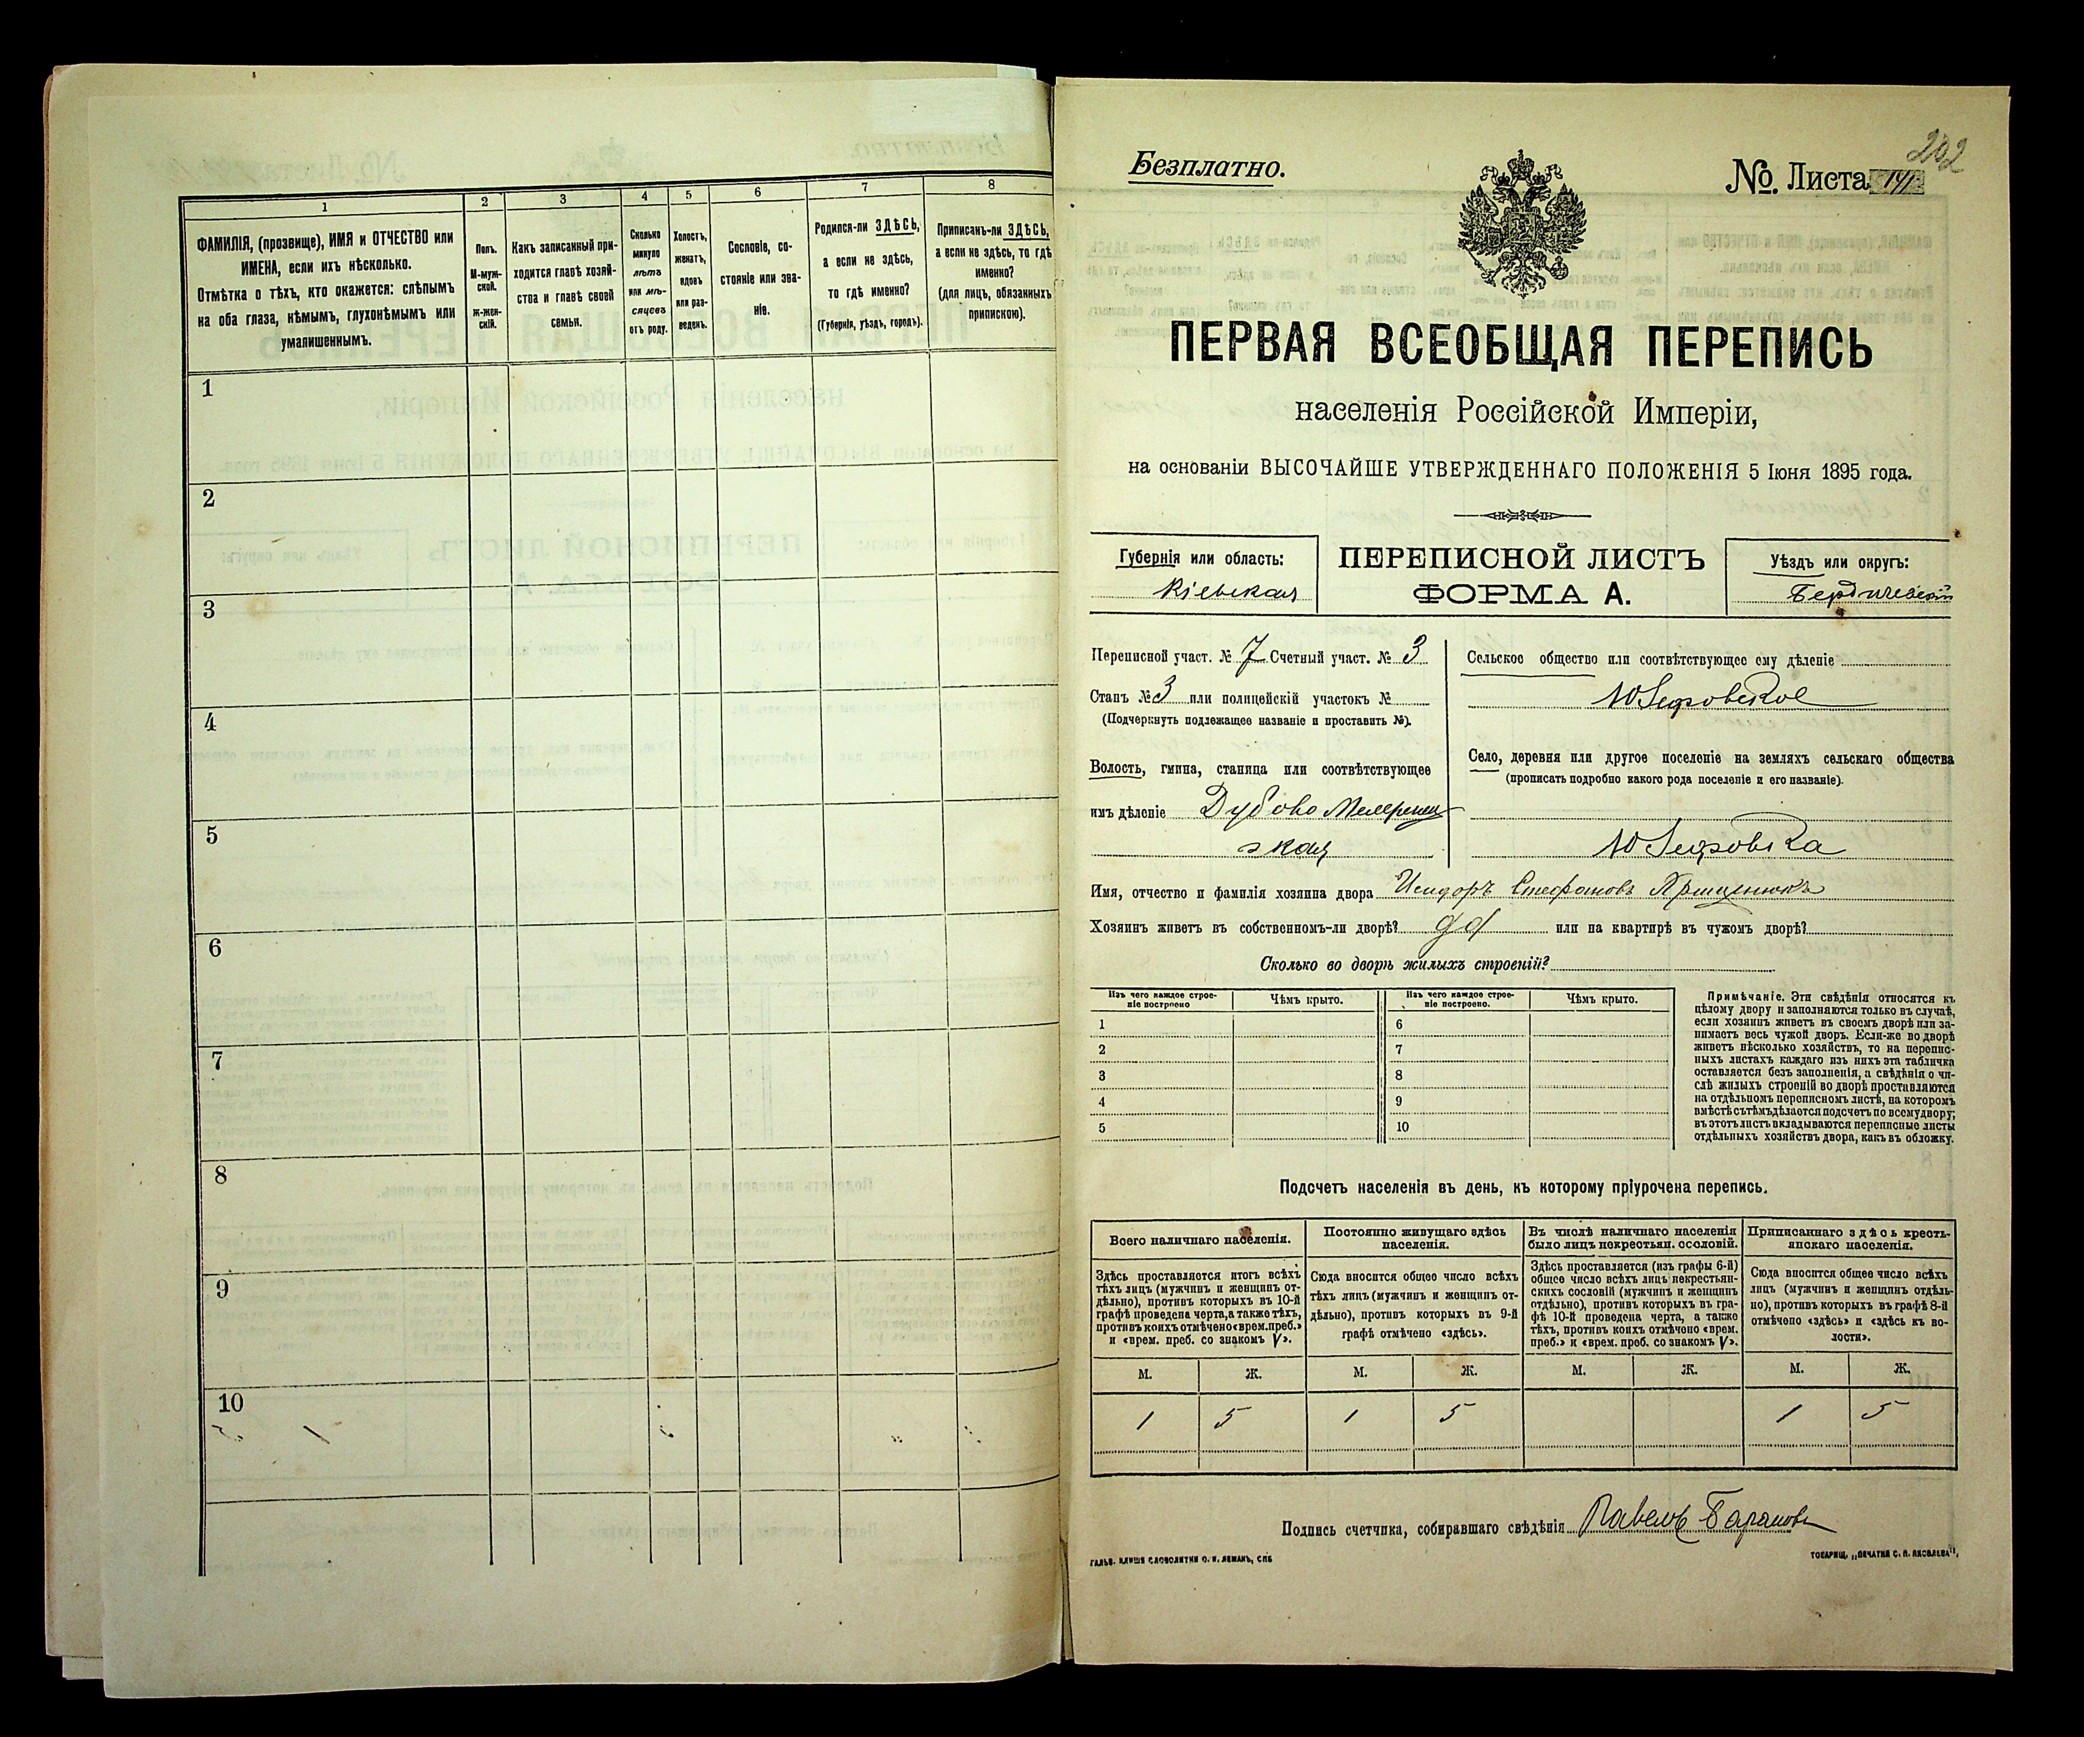 1
2
3
4
5
6
7
8
ФАМИЛІЯ, (прозвище), ИМЯ и ОТЧЕСТВО или
ИМЕНА, если ихъ нѣсколько.
Отмѣтка о тѣхъ, кто окажется: слѣпымъ
на оба глаза, нѣмымъ, глухонѣмымъ или
умалишеннымъ.
Полъ.
М-муж-
ской.
ж-жен-
скій.
Какъ записанный при-
ходится главѣ хозяй-
ства и главѣ своей
семьи.
Сколько
минуло
лѣтъ
или мѣ-
сяцевъ
отъ роду.
Холостъ,
женатъ,
вдовъ
или раз-
веденъ.
Сословіе, со-
стояніе или зва-
ніе.
Родился-ли ЗДѢСЬ,
а если не здѣсь,
то гдѣ именно?
(Губернія, уѣздъ, городъ).
Приписанъ-ли ЗДѢСЬ,
а если не здѣсь, то гдѣ
именно?
(для лицъ, обязанныхъ
припискою).
1
2
3
4
5
6
7
8
9
10
202
Безплатно.
№. Листа 141
ПЕРВАЯ ВСЕОБЩАЯ ПЕРЕПИСЬ
населенія Россійской Имперіи,
на основаніи ВЫСОЧАЙШЕ УТВЕРЖДЕННАГО ПОЛОЖЕНІЯ 5 Іюня 1895 года.
Губернія или область:
Кіевская
ПЕРЕПИСНОЙ ЛИСТЪ
ФОРМА А.
Уѣздъ или округъ:
Бердичевскій
Переписной участ. № 7 Счетный участ. № 3
Станъ № 3 или полицейскій участокъ №
(Подчеркнуть подлежащее названіе и проставить №).
Волость, гмина, станица или соотвѣтствующее
имъ дѣленіе Дубово
ская
Сельское общество или соотвѣтствующее ему дѣленіе
Юзефовское
Село, деревня или другое поселеніе на земляхъ сельскаго общества
(прописать подробно какого рода поселеніе и его названіе).
Юзефовка
Имя, отчество и фамилія хозяина двора Исидоръ Стефановъ
Хозяинъ живетъ въ собственномъ-ли дворѣ? да или на квартирѣ въ чужомъ дворѣ?
Сколько во дворѣ жилыхъ строеній?
Изъ чего каждое строе-
ніе построено
Чѣмъ крыто.
Изъ чего каждое строе-
ніе построено.
Чѣмъ крыто.
1
2
3
4
5
6
7
8
9
10
Примѣчаніе. Эти свѣдѣнія относятся къ
цѣлому двору и заполняются только въ случаѣ,
если хозяинъ живетъ въ своемъ дворѣ или за-
нимаетъ весь чужой дворъ. Если-же во дворѣ
живетъ нѣсколько хозяйствъ, то на перепис-
ныхъ листахъ каждаго изъ нихъ эта табличка
оставляется безъ заполненія, а свѣдѣнія о чи-
слѣ жилыхъ строеній во дворѣ проставляются
на отдѣльномъ переписномъ листѣ, на которомъ
вмѣстѣ съ тѣмъ дѣлается подсчетъ по всему двору;
въ этотъ листъ вкладываются переписные листы
отдѣльныхъ хозяйствъ двора, какъ въ обложку.
Подсчетъ населенія въ день, къ которому пріурочена перепись.
Всего наличнаго населенія.
Постоянно живущаго здѣсь
населенія.
Въ числѣ наличнаго населенія
было лицъ некрестьян. сословій.
Приписаннаго здѣсь кресть-
янскаго населенія.
Здѣсь проставляется итогъ всѣхъ
тѣхъ лицъ (мужчинъ и женщинъ от-
дѣльно), противъ которыхъ въ 10-й
графѣ проведена черта, а также тѣхъ,
противъ коихъ отмѣчено «врем. преб.»
и «врем. преб. со знакомъ V».
Сюда вносится общее число всѣхъ
тѣхъ лицъ (мужчинъ и женщинъ от-
дѣльно), противъ которыхъ въ 9-й
графѣ отмѣчено «здѣсь».
Здѣсь проставляется (изъ графы 6-й)
общее число всѣхъ лицъ некрестьян-
скихъ сословій (мужчинъ и женщинъ
отдѣльно), противъ которыхъ въ гра-
фѣ 10-й проведена черта, а также
тѣхъ, противъ коихъ отмѣчено «врем.
преб.» и «врем. преб. со знакомъ V».
Сюда вносится общее число всѣхъ
лицъ (мужчинъ и женщинъ отдѣль-
но), противъ которыхъ въ графѣ 8-й
отмѣчено «здѣсь» и «здѣсь къ во-
лости».
М. Ж. М. Ж. М. Ж. М. Ж.
1 5 1 5 1 5
Подпись счетчика, собиравшаго свѣдѣнія Павелъ Барановъ
ГАЛЬВ. КЛИШЕ СЛОВОЛИТНИ О. И. ЛЕМАНЪ, СПБ
ТОВАРИЩ. „ПЕЧАТНЯ С. П. ЯКОВЛЕВА".